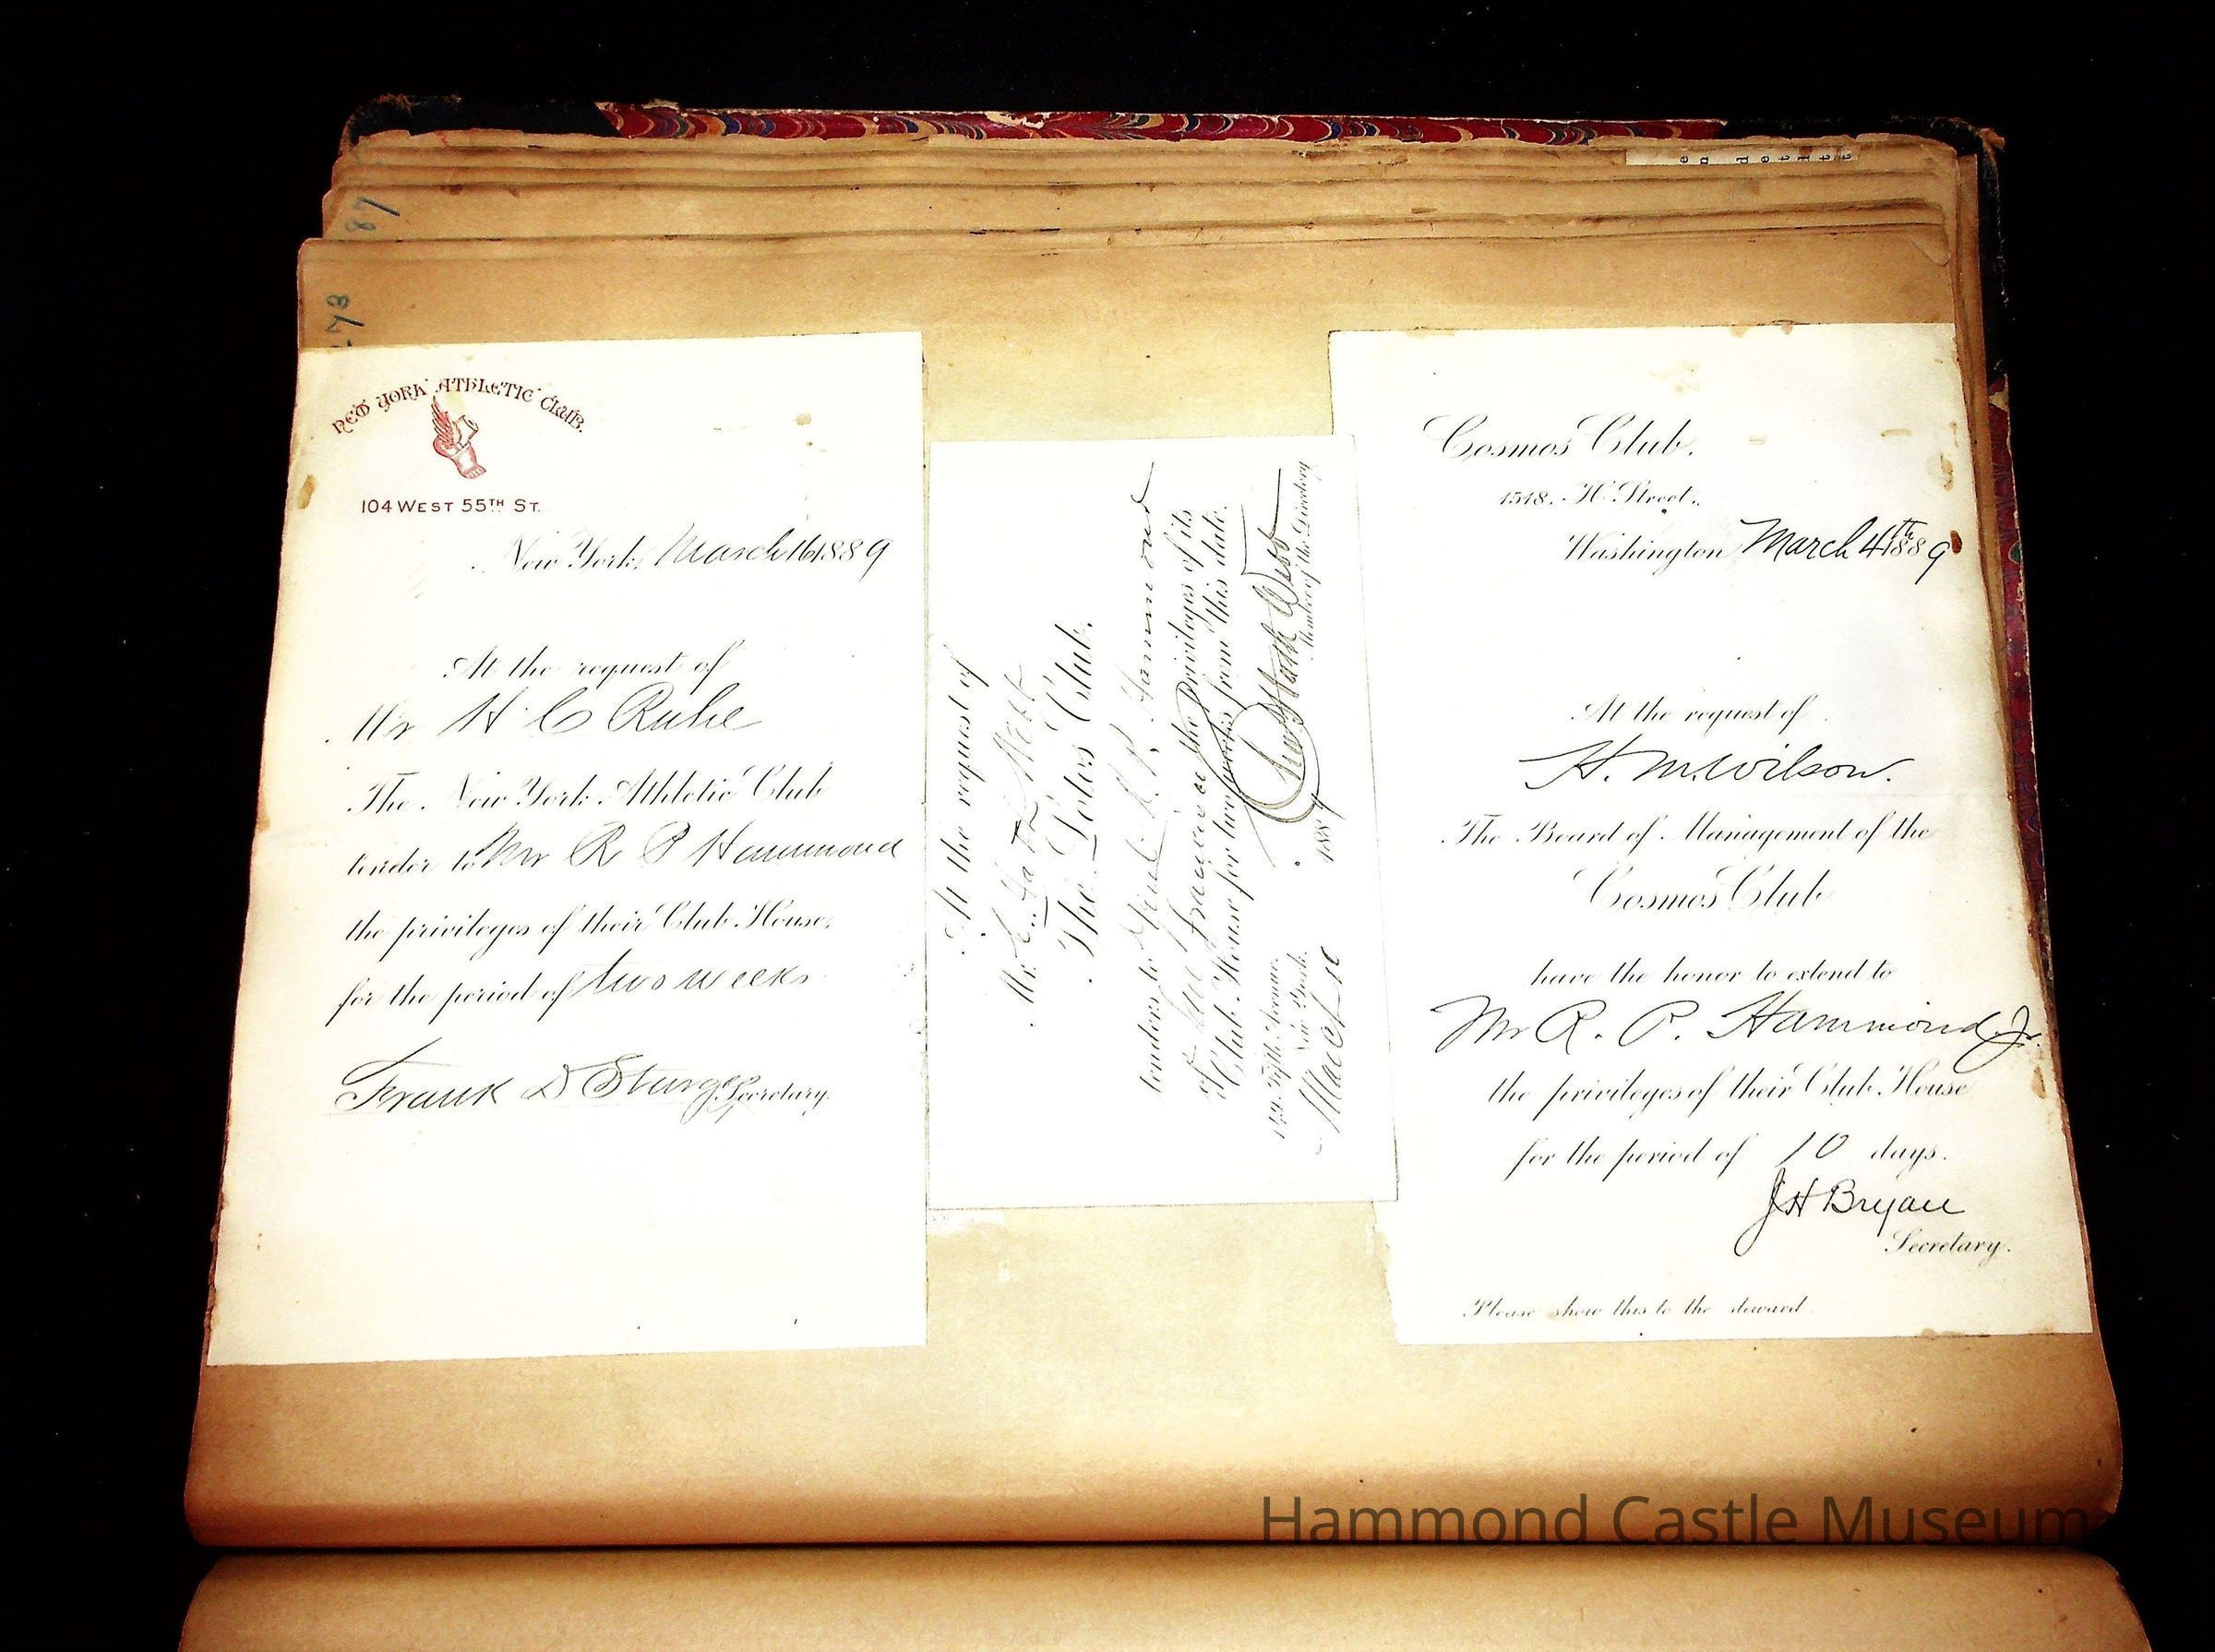 87
273
NEW YORK ATHLETIC CLUB.
104 WEST 55TH ST.
New York, March 16 1889
At the request of
Mr H C Ruhe
The New York Athletic Club
tender to Mr R P Hammond
the privileges of their Club House,
for the period of two weeks
Frank D Sturges Secretary.
At the request of
Mr.
The Lotos Club.
tenders to R. P. Hammond
of San Francisco the Privileges of its
Club House for two weeks from this date.
Webb
Member of the Directory
149. Fifth Avenue.
New York.
March 16 1889
Cosmos Club.
1518. H Street.
Washington March 4th 1889
At the request of
H. M. Wilson.
The Board of Management of the
Cosmos Club
have the honor to extend to
Mr R. P. Hammond Jr.
the privileges of their Club House
for the period of 10 days.
J H Bryan
Secretary.
Please show this to the steward
Hammond Castle Museum